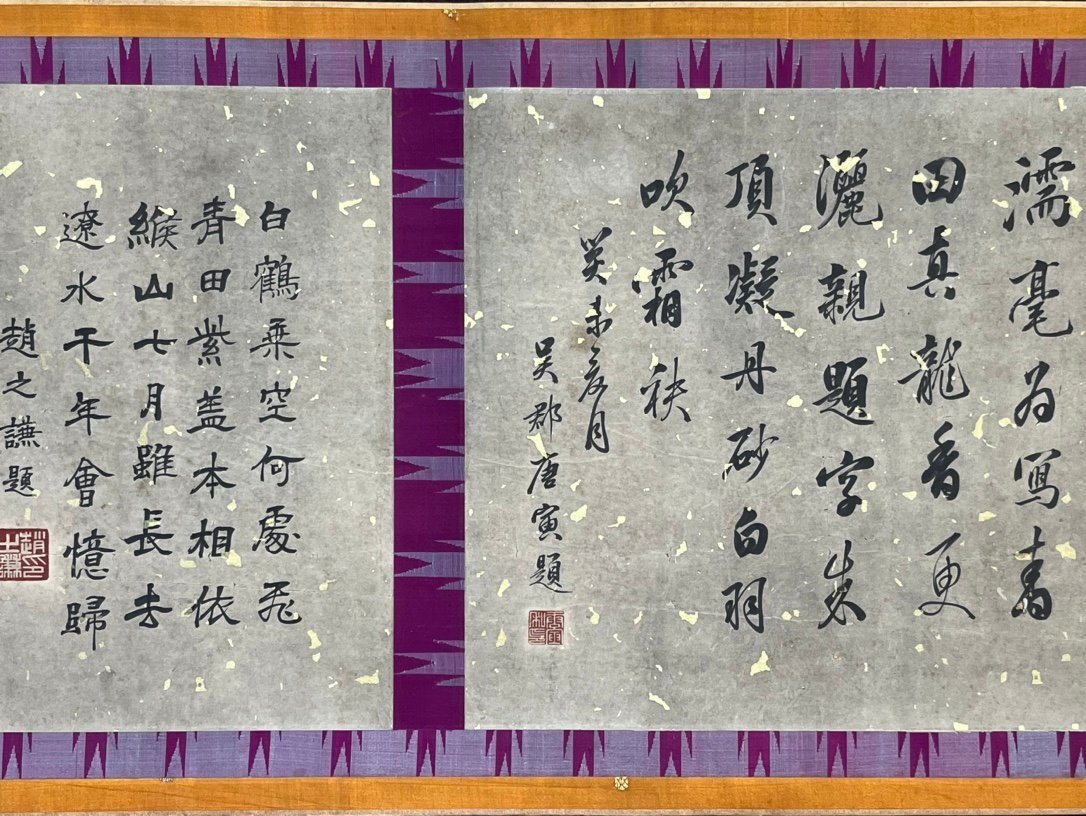 濡毫為寫青
田真龍香更
灑親題字朱
頂凝丹砂白羽
吹霜袂
癸未夏月
吳郡唐寅題
白鶴乘空何處飛
青田紫蓋本相依
緱山七月雖長去
遼水千年會憶歸
趙之謙題